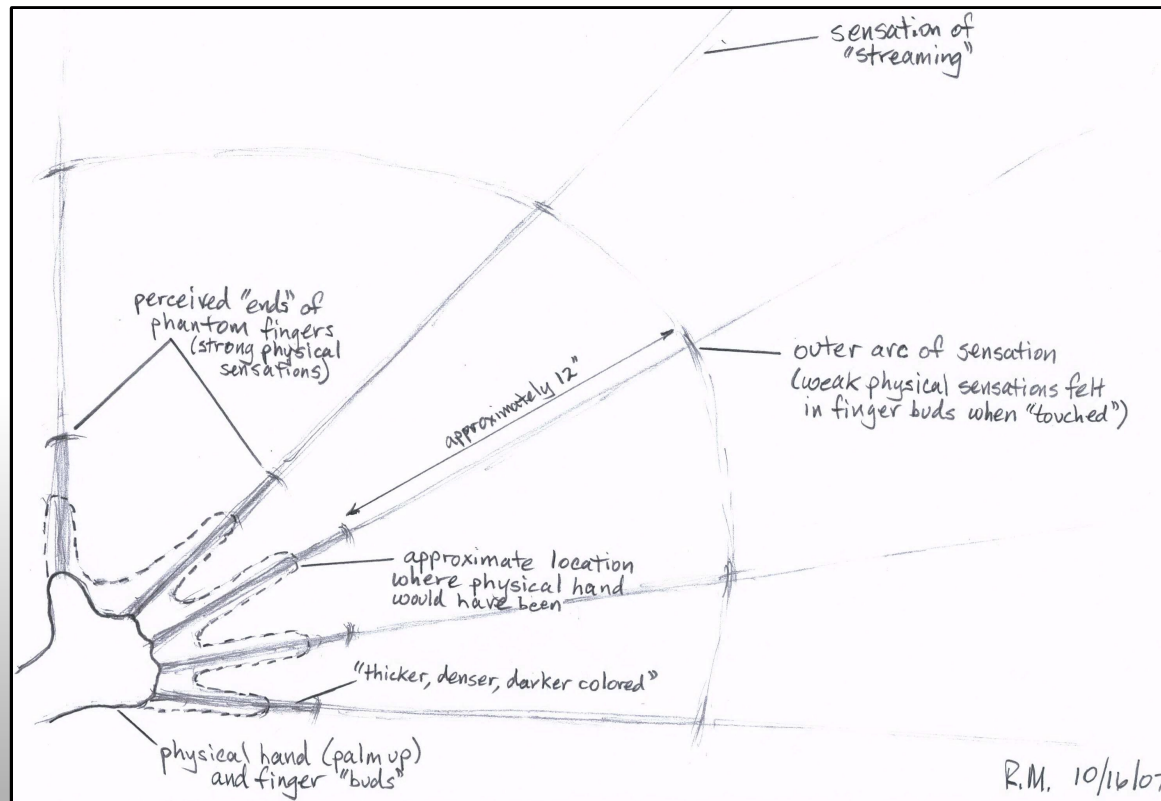 sensation of
"streaming"
perceived "ends" of
phantom fingers
(strong physical
sensations)
approximately 12"
outer arc of sensation
(weak physical sensations felt
in finger buds when "touched")
approximate location
where physical hand
would have been
"thicker, denser, darker colored"
physical hand (palm up)
and finger "buds"
R.M. 10/16/07